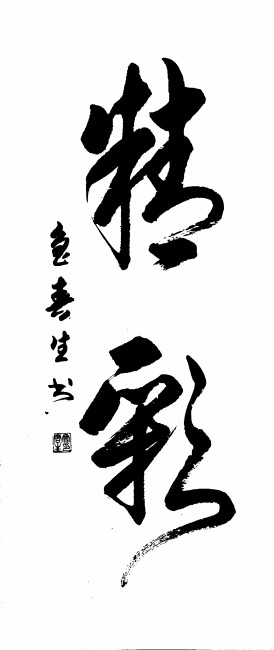 精彩
鱼春生书